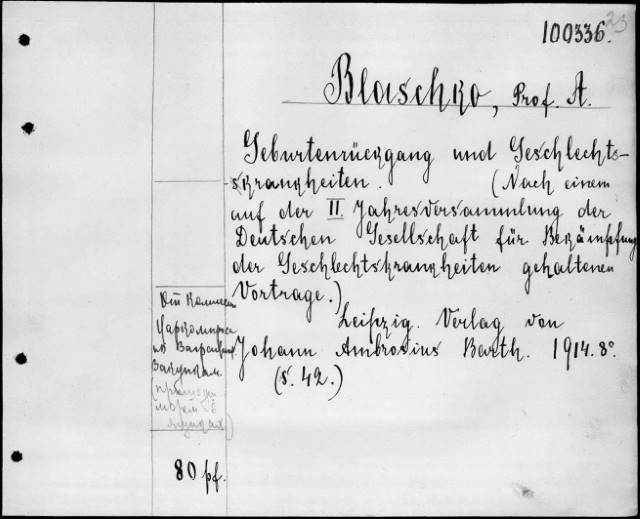 23
100336.
Blaschko, Prof. A.
Geburtenrückgang und Geschlechts-
-skrankheiten. (Nach einem
auf der II. Jahresversammlung der
Deutschen Gesellschaft für Bekämpfung
der Geschlechtskrankheiten gehaltenen
Vortrage.)
Leipzig. Verlag von
Johann Ambrosius Barth. 1914. 8°.
(S. 42.)
От Комиссии
Наркоминдела
по
Закупкам.
80 pf.